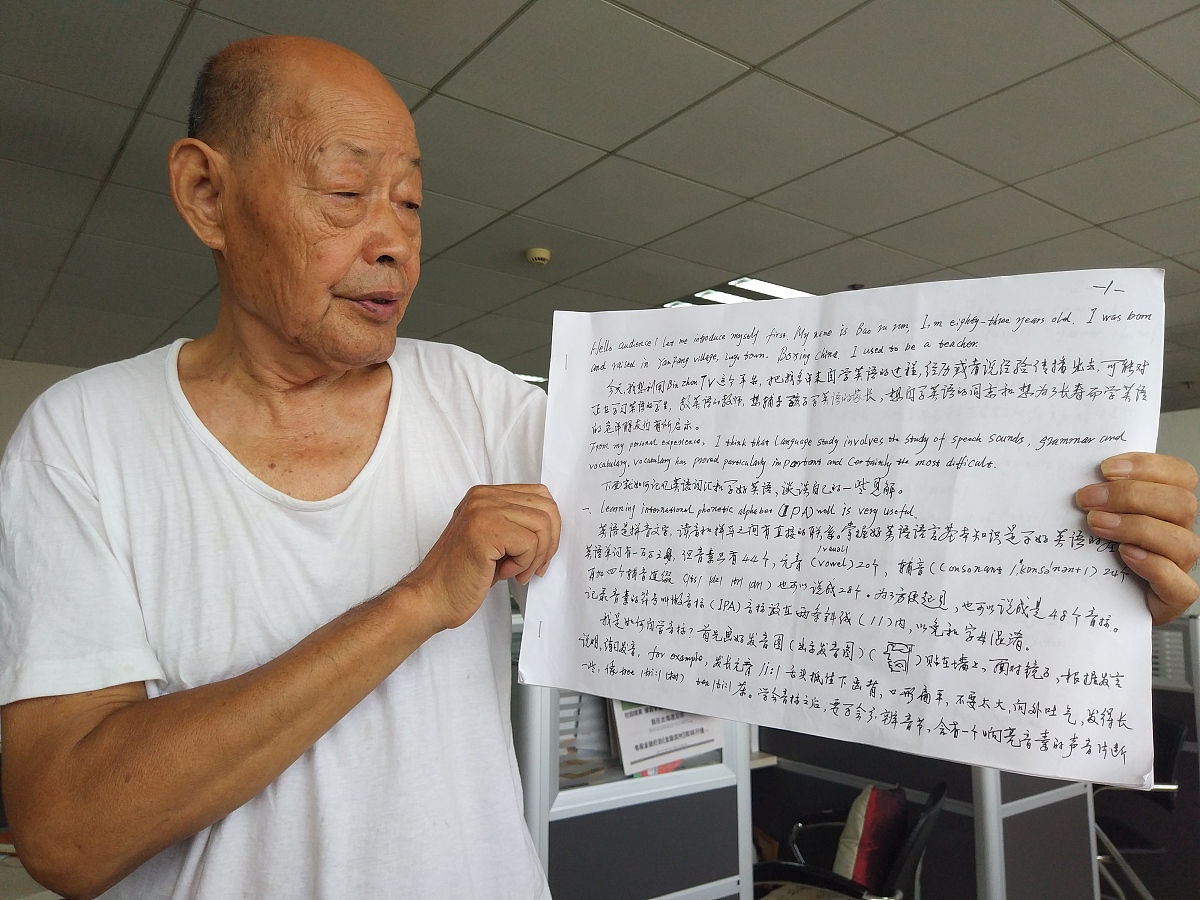 -1-
Hello audience! Let me introduce myself first. My name is Bao ru min, I,m eighty-three years old. I was born
and raised in YanFang village, town, Boxing China. I used to be a teacher.
今天,我想利用Bin zhou TV这个平台,把我多年来自学英语的过程,经历或者说经验传播出去,可能对
正在学习英语的学生,教英语的教师,想辅导孩子学英语的家长,想自学英语的同志和想为了长寿而学英语
的老年朋友们有所启示。
From my personal experience, I think that language study involves the study of speech sounds, grammar and
vocabulary, vocabulary has proved particularly important and certainly the most difficult.
下面就如何记忆英语词汇和学好英语,谈谈自己的一些见解。
一、learning international phonetic alphabet (IPA) well is very useful.
英语是拼音文字,读音和拼写之间有直接的联系。掌握好英语语言基本知识是学好英语的基
英语单词有一百万之多,但音素只有44个,元音(vowel)20个,辅音(consonant /'kɔnsənənt/)24个
再加四个辅音连缀(/ts/ /dz/ /tr/ /dr/)也可以说成28个。为了方便起见,也可以说成是48个音标。
记录音素的符号叫做音标(IPA)音标放在两条斜线(//)内,以免和字母混淆。
我是如何自学音标?首先画好发音图(出示发音图)()贴在墙上,面对镜子,根据发音
说明,练习发音,for example,发长元音/i:/舌尖抵住下齿,口形扁平,不要太大,向外吐气,发得长
一些,像bee /bi:/ tea /ti:/茶。学会音标之后,要学会分辨音节,含有一个响亮音素的声音片断